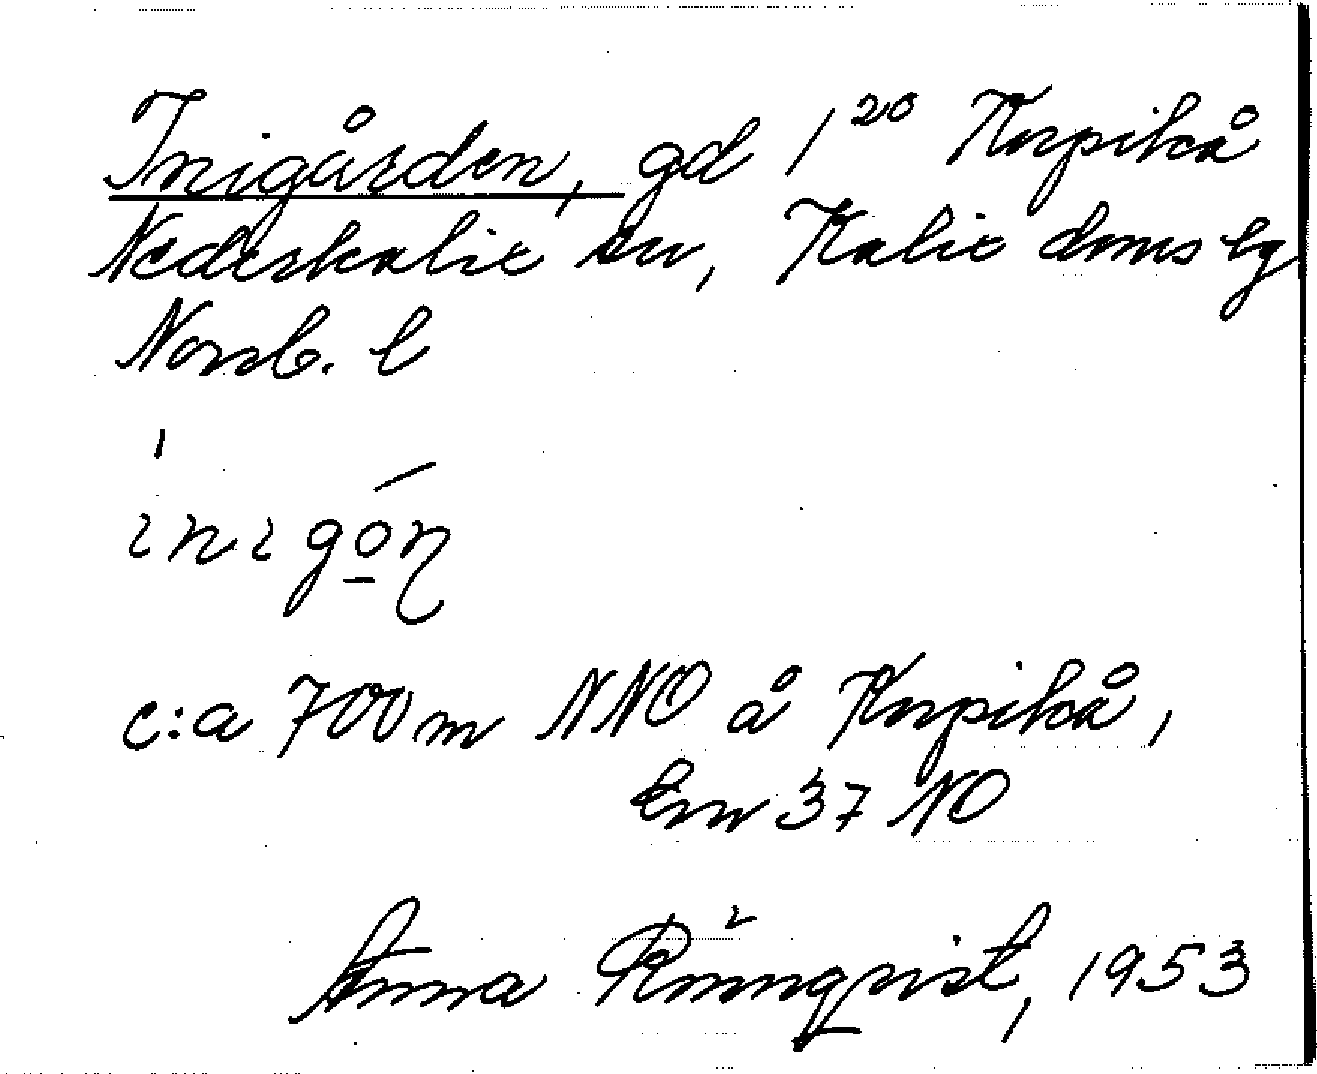 Inigården, gd 1²⁰ Korpikå
Nederkalix sn, Kalix doms lg
Norrb. l
ınıgo̲ɳ
c:a 700 m NNO å Korpikå,
Em 37 NO
Anna Rönnqvist, 1953